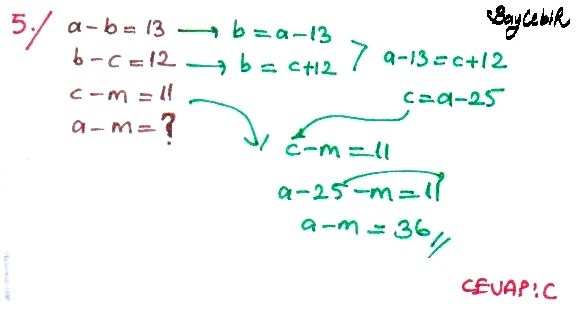 BayCebiR
5./ a-b=13 → b=a-13
b-c=12 → b=c+12 > a-13=c+12
c-m=11
c=a-25
a-m=?
c-m=11
a-25-m=11
a-m=36//
CEVAP:C